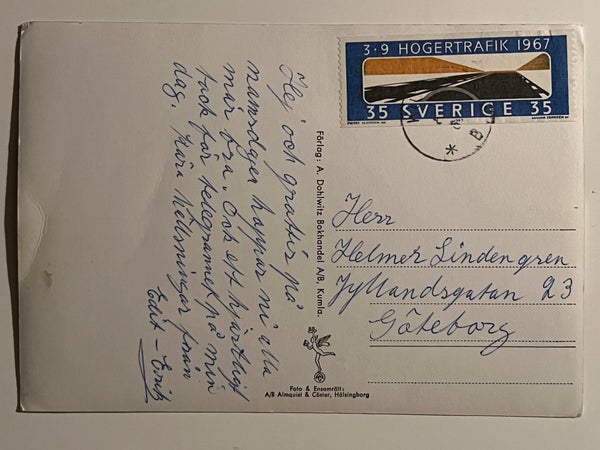 3·9 HÖGERTRAFIK 1967
35 SVERIGE 35
Hej och grattis på
namsdagen hoppas ni alla
mår bra. Och ett hjärtligt
tack för telegrammet på min
dag. Kära hällsningar från
Edit – Erik
Förlag: A. Dahlwitz Bokhandel A/B, Kumla.
Herr
Helmer Lindengren
Jyllandsgatan 23
Göteborg
Foto & Ensamrätt:
A/B Almquist & Cöster, Hälsingborg